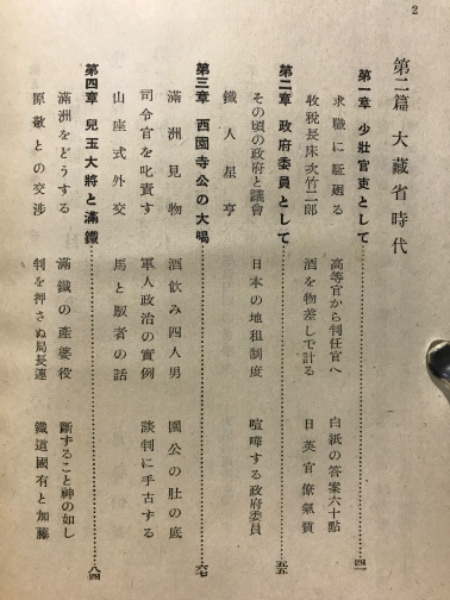 2
第二篇 大藏省時代
第一章 少壯官吏として 四一
求職に駈廻る 高等官から判任官へ 白紙の答案六十點
收稅長床次竹二郎 酒を物差しで計る 日英官僚氣質
第二章 政府委員として 五五
その頃の政府と議會 日本の地租制度 喧嘩する政府委員
鐵人星亨
第三章 西園寺公の大喝 六七
滿洲見物 酒飮み四人男 園公の肚の底
司令官を叱責す 軍人政治の實例 談判に手古する
山座式外交 馬と馭者の話
第四章 兒玉大將と滿鐵 八四
滿洲をどうする 滿鐵の產婆役 斷ずること神の如し
原敬との交涉 判を押さぬ局長連 鐵道國有と加藤